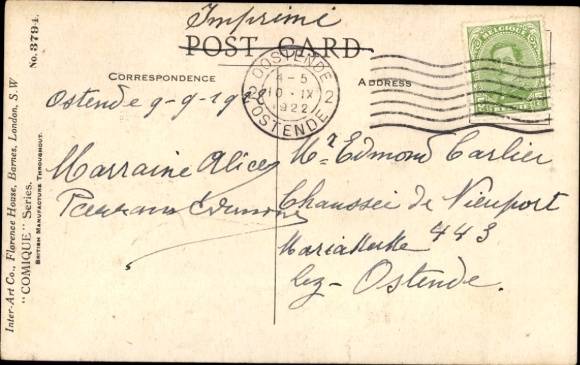 Imprimé
POST CARD
CORRESPONDENCE
ADDRESS
OOSTENDE
4-5
10 IX
1922
2 2
OSTENDE
BELGIQUE
BELGIË
Ostende 9-9-1922
Marraine Alice
Parrain Edmond
Mr Edmond Carlier
Chaussée de Nieuport
Mariakerke 443
lez-Ostende.
Inter-Art Co., Florence House, Barnes, London, S.W
"COMIQUE" Series.
BRITISH MANUFACTURE THROUGHOUT.
No. 3794.